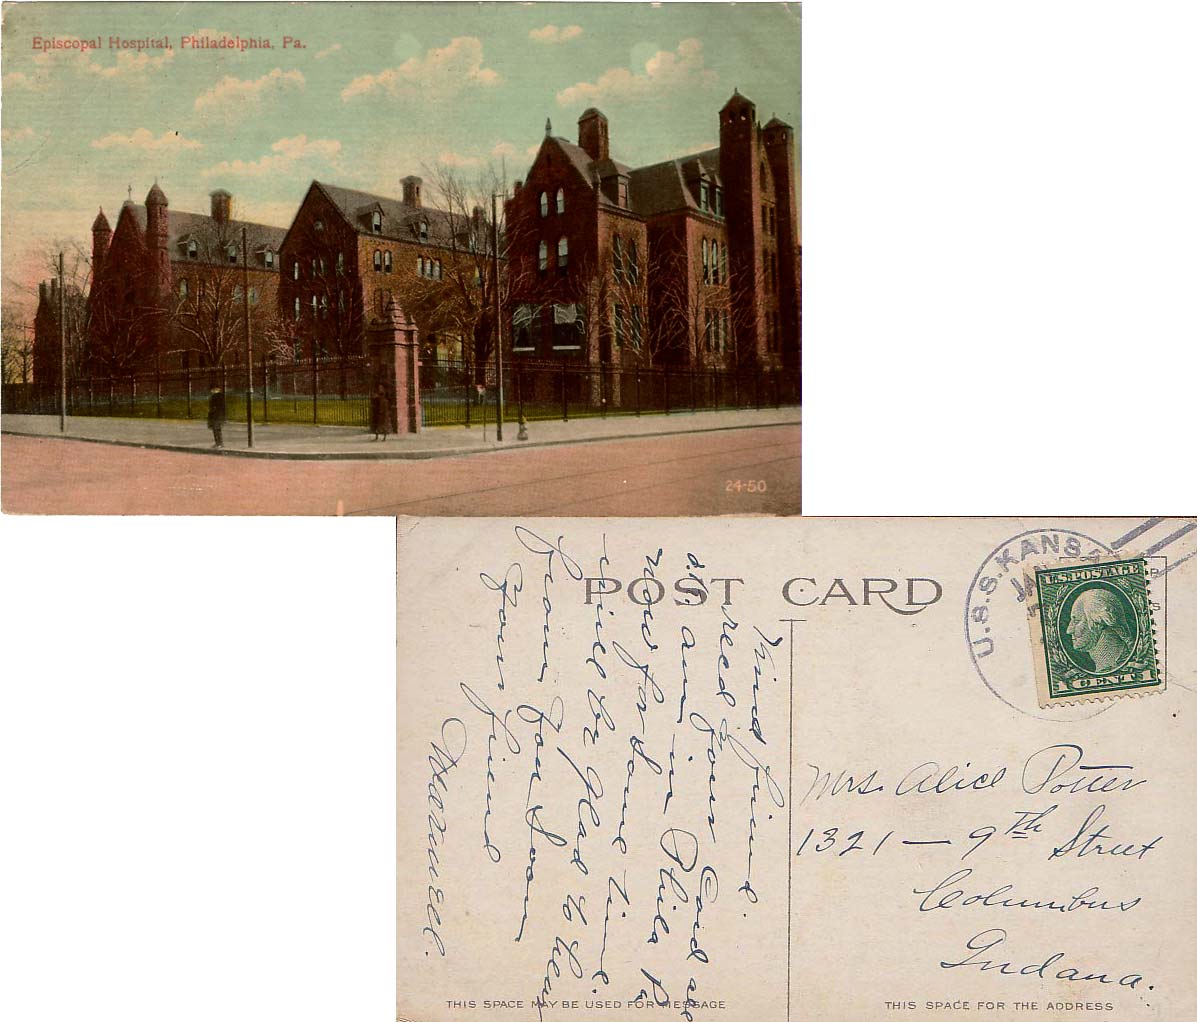 Episcopal Hospital, Philadelphia, Pa.
24-50
POST CARD
U.S.S. KANSAS
JAN
U.S. POSTAGE
1 CENT 1
Kind friend.
recd your Card all
o.k. am in Phila Pa
now for some time.
will be glad to hear
from you soon
your friend
Mrs. Alice Potter
1321 — 9th Street
Columbus
Indana.
THIS SPACE MAY BE USED FOR MESSAGE
THIS SPACE FOR THE ADDRESS